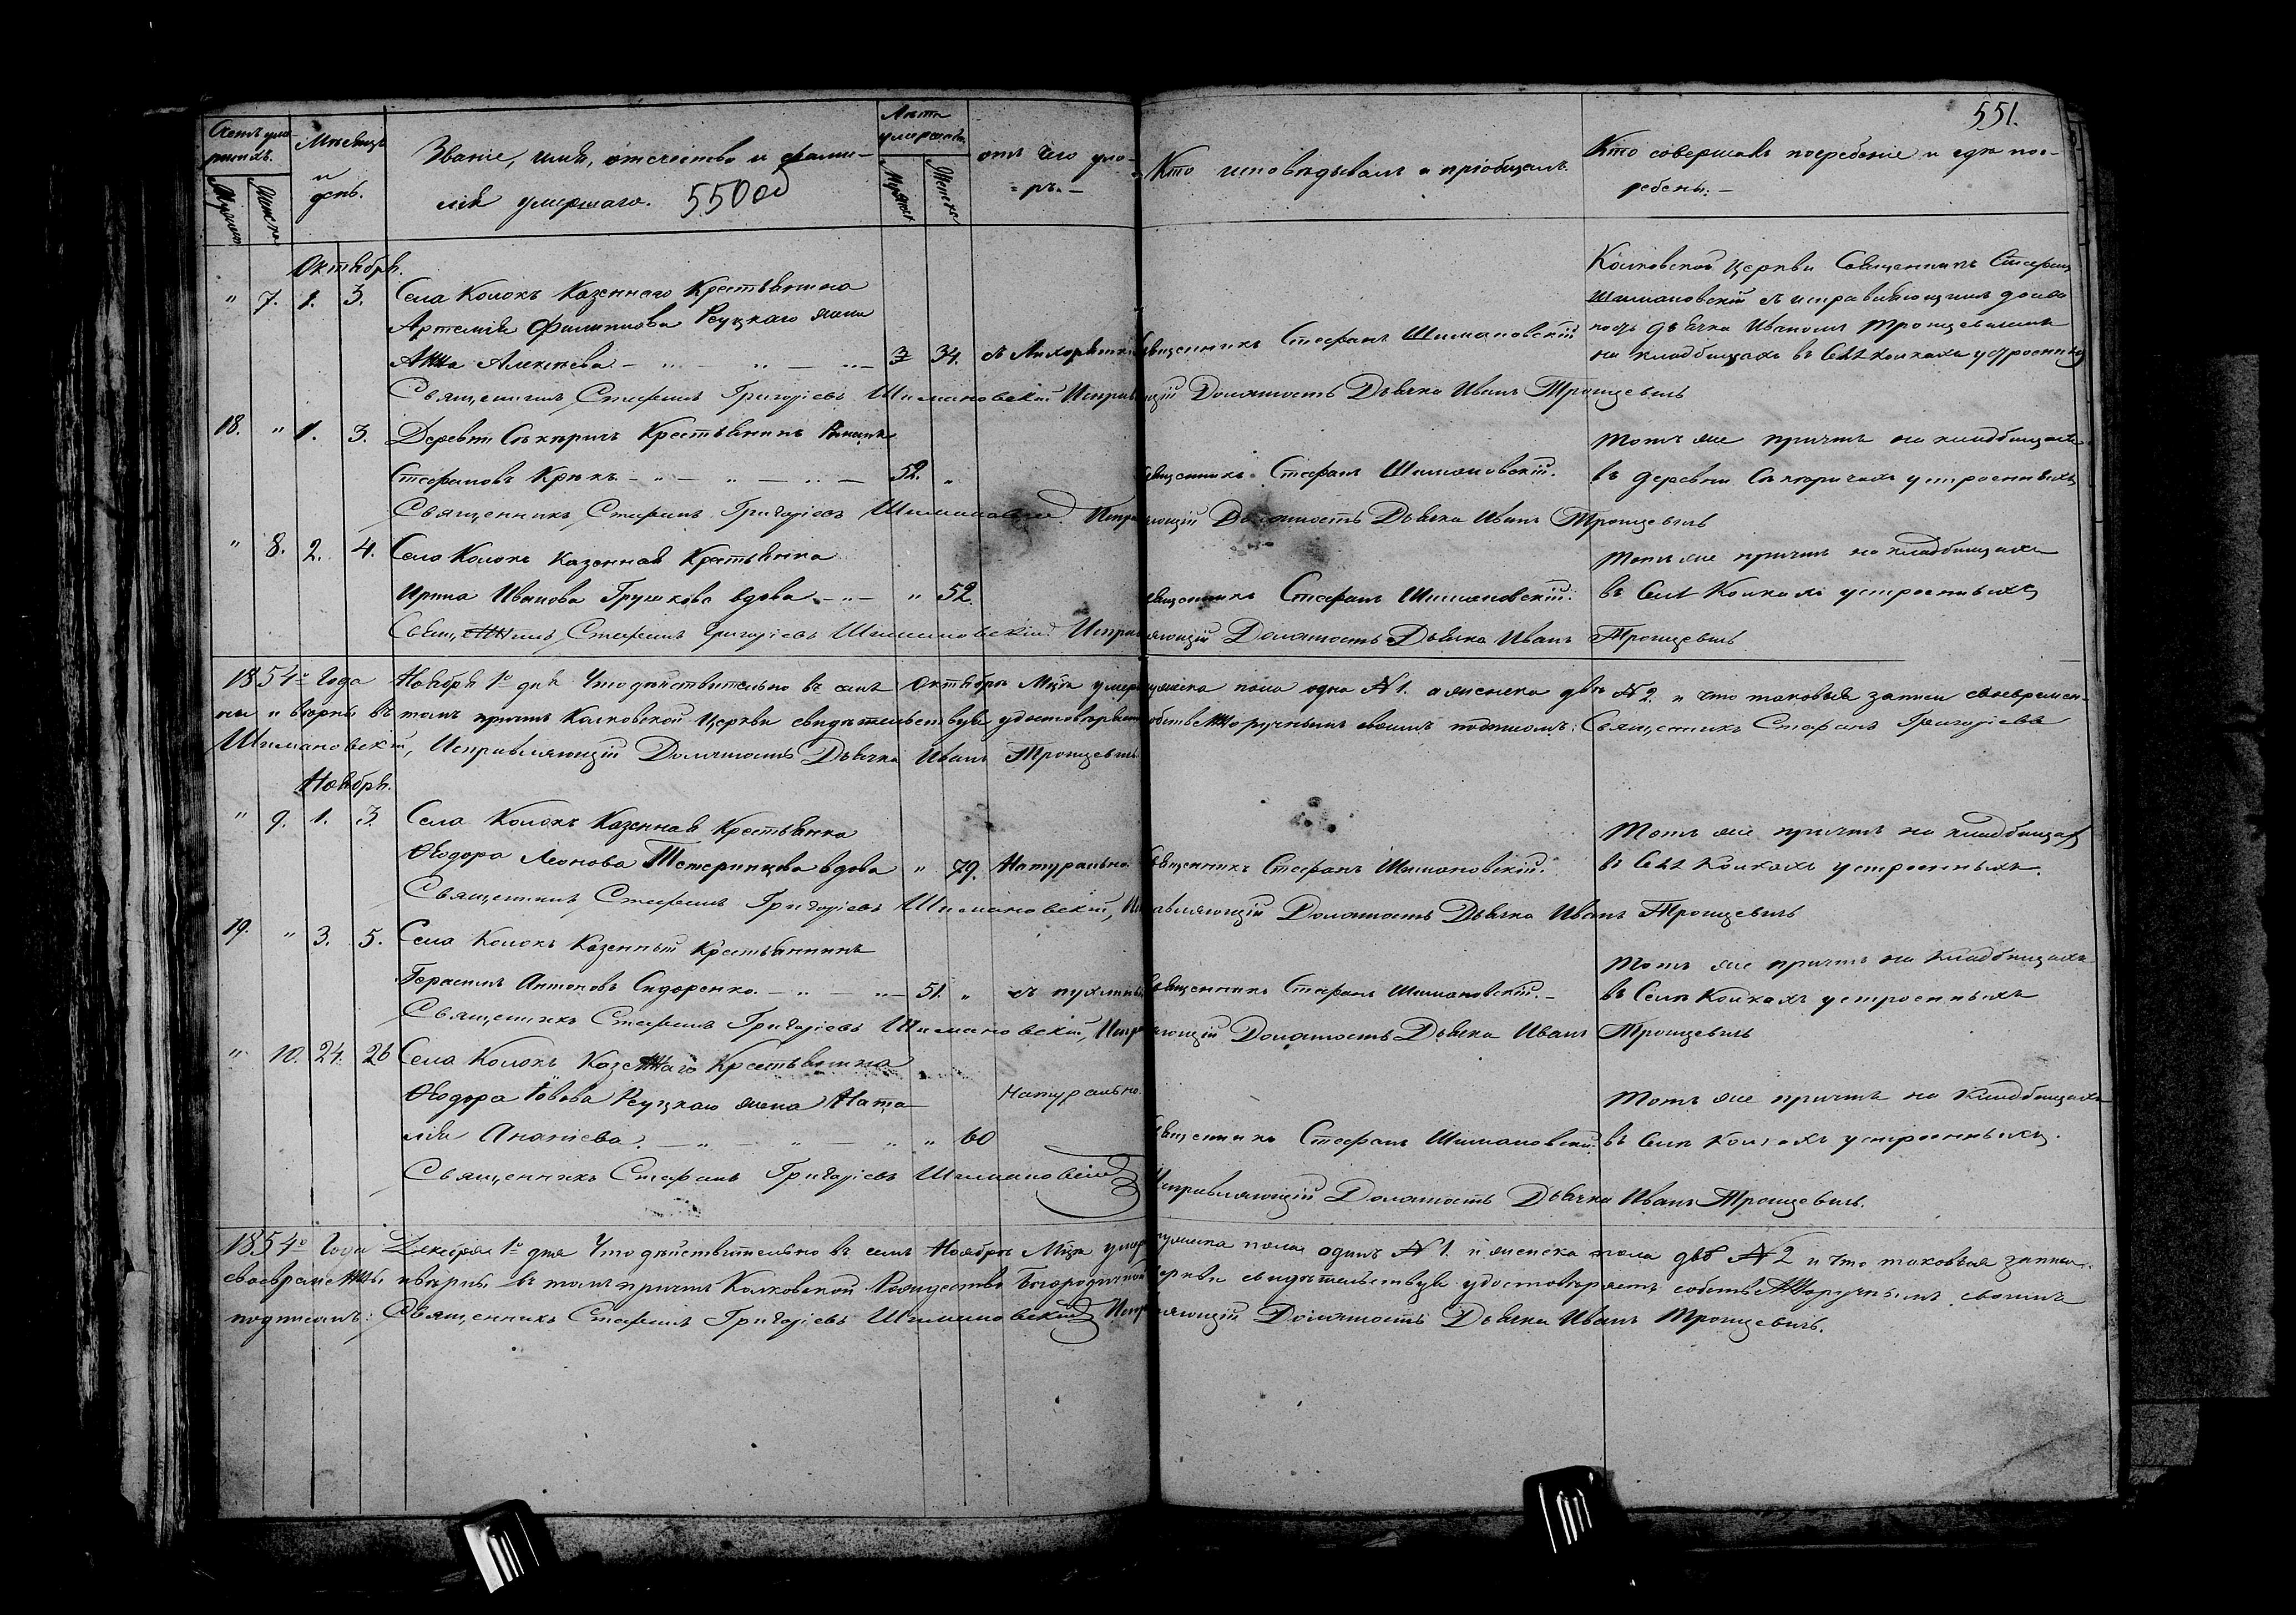 551.
Счетъ умершихъ.
Мѣсяцъ и день.
Званіе, имя, отечество и фами-
лія умершаго. 550об
Лѣта умершаго.
отъ чего уме-
=ръ.-
Кто исповѣдывалъ и пріобщалъ.
Кто совершалъ погребеніе и гдѣ пог-
ребены.-
Мужеска Женска
Мужеска Женска
Октября.
" 7. 1. 3. Села Колокъ Казеннаго Крестьянина
Артемія Филиппова Реуцкаго жена
Анна Алексѣева 34.
Священникъ Стефанъ Шимановскій
Колковской Церкви Священникъ Стефанъ
Шимановскій съ исправляющимъ долж
ность дьячка Иваномъ Троцевичемъ
на кладбищахъ въ Селѣ Колкахъ устроенныхъ
Священникъ Стефанъ Григорьевъ Шимановскій Исправляющій Должность Дьячка Иванъ Троцевичъ
18. " 1. 3. Деревни Крестьянинъ
Стефановъ Крюкъ 52. "
Священникъ Стефанъ Шимановскій.
Тотъ же причтъ на кладбищахъ
въ деревни устроенныхъ
Священникъ Стефанъ Григорьевъ Шимановскій. Исправляющій Должность Дьячка Иванъ Троцевичъ
" 8. 2. 4. Село Колокъ Казенная Крестьянка
Ирина Иванова Грушкова вдова " 52.
Священникъ Стефанъ Шимановскій.
Тотъ же причтъ на кладбищахъ
въ Селѣ Колкахъ устроенныхъ
Священникъ Стефанъ Григорьевъ Шимановскій Исправляющій Должность Дьячка Иванъ Троцевичъ
1854го Года Ноября 1го дня Что дѣйствительно въ семъ Октябрѣ Мцѣ умерло мужеска пола одна №1. а женска двѣ №2. и что таковыя записи своевремен-
ны и вѣрны въ томъ причтъ Колковской Церкви свидѣтельствуя удостовѣряетъ собственоручнымъ своимъ подписомъ: Священникъ Стефанъ Григорьевъ
Шимановскій, Исправляющій Должность Дьячка Иванъ Троцевичъ
Ноября.
" 9. 1. 3. Села Колокъ Казенная Крестьянка
Ѳеодора Леонова Тетеринцова вдова " 79. Натурально.
Священникъ Стефанъ Шимановскій.
Тотъ же причтъ на кладбищахъ
въ Селѣ Колкахъ устроенныхъ.
Священникъ Стефанъ Григорьевъ Шимановскій, Исправляющій Должность Дьячка Иванъ Троцевичъ
19. " 3. 5. Села Колокъ Казенный Крестьянинъ
Герасимъ Антоновъ Сидоренко. 51. "
Священникъ Стефанъ Шимановскій.
Тотъ же причтъ на кладбищахъ
въ Селѣ Колкахъ устроенныхъ
Священникъ Стефанъ Григорьевъ Шимановскій, Исправляющій Должность Дьячка Иванъ Троцевичъ
" 10. 24. 26 Села Колокъ Казеннаго Крестьянина
Ѳеодора Реуцкаго жена Ната-
лія Ананіева. " 60 Натурально.
Священникъ Стефанъ Шимановскій.
Тотъ же причтъ на кладбищахъ
въ Селѣ Колкахъ устроенныхъ.
Священникъ Стефанъ Григорьевъ Шимановскій Исправляющій Должность Дьячка Иванъ Троцевичъ.
1854го Года Декабря 1го дня Что дѣйствительно въ семъ Ноябрѣ Мцѣ умерло мужеска пола одинъ №1. и женска пола двѣ №2 и что таковыя записи
своевременны и вѣрны въ томъ причтъ Колковской Рождество Богородичной Церкви свидѣтельствуя удостовѣряетъ собственоручнымъ своимъ
подписомъ: Священникъ Стефанъ Григорьевъ Шимановскій Исправляющій Должность Дьячка Иванъ Троцевичъ.